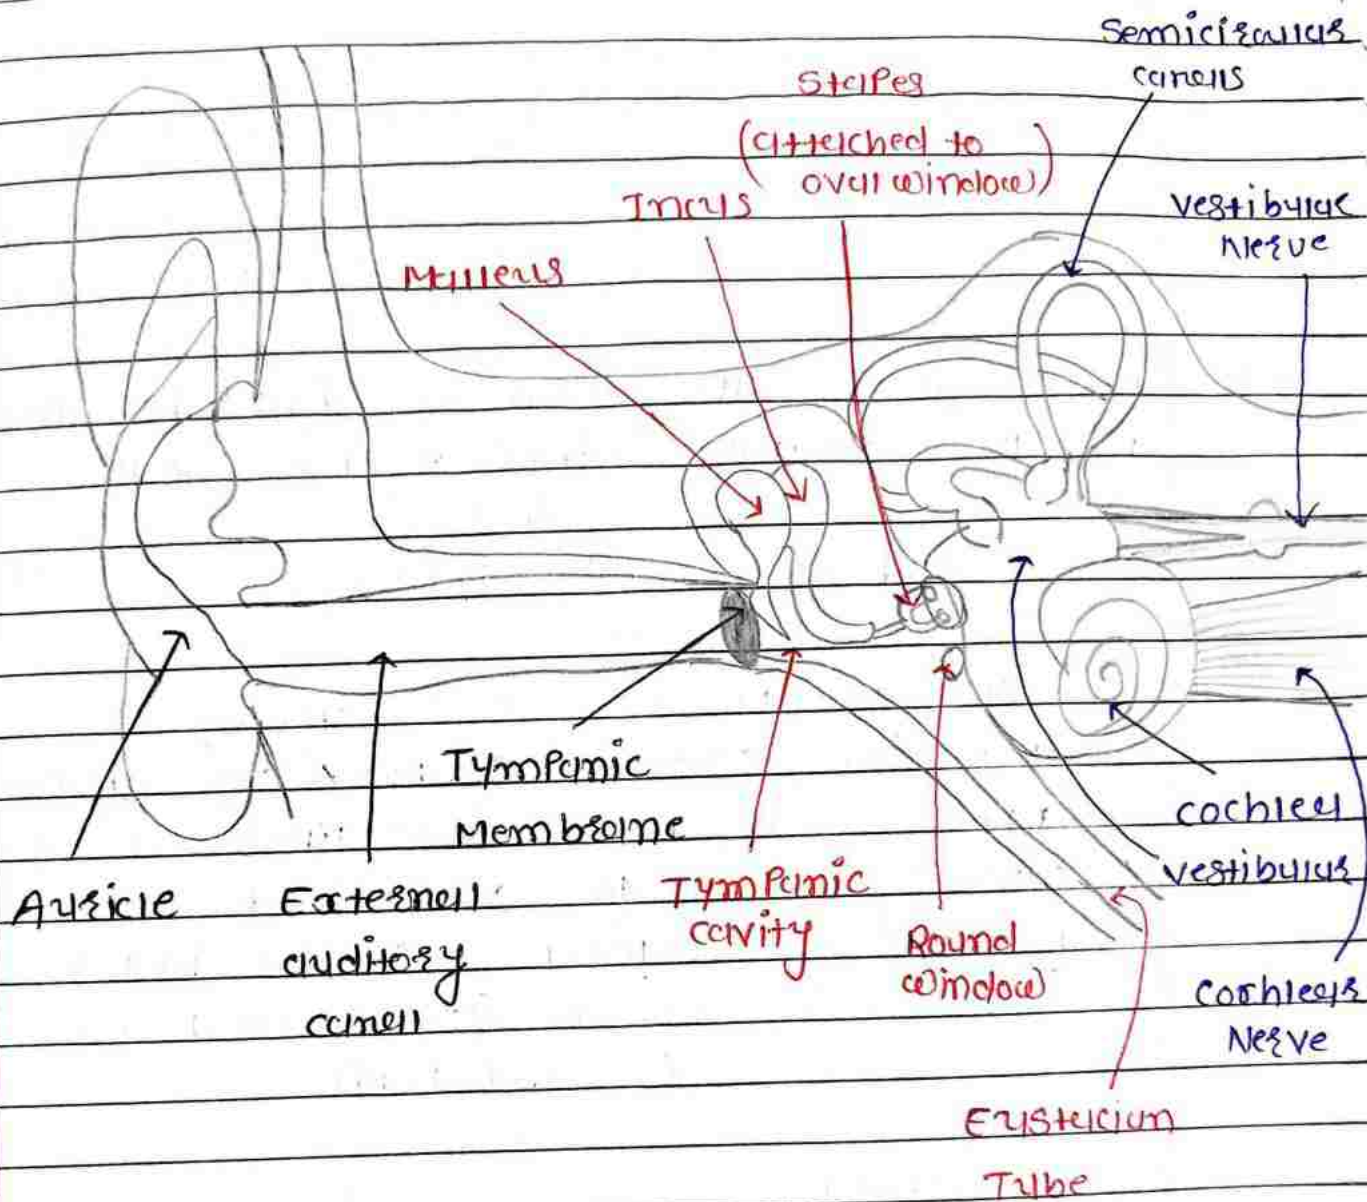 Semicircular
canals
Stapes
(attached to
oval window)
Incus
Malleus
Vestibular
Nerve
Tympanic
Membrane
Auricle
External
auditory
canal
Tympanic
cavity
Round
window
cochlea
Vestibular
Cochlear
Nerve
Eustacian
Tube